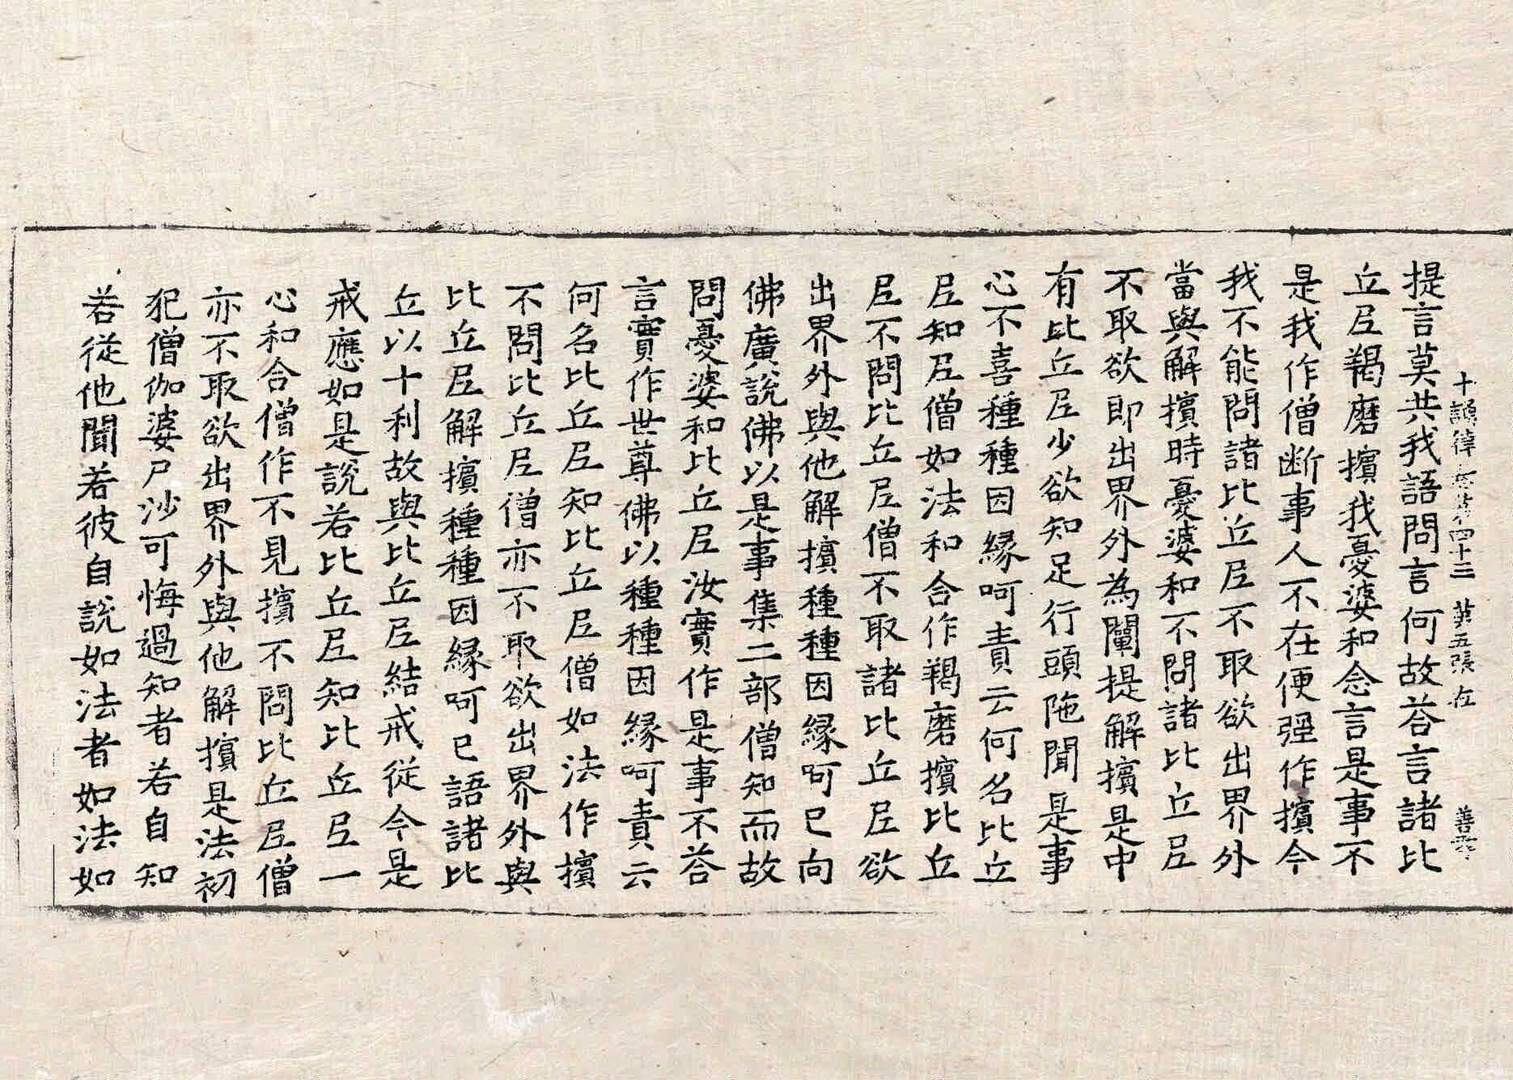 十誦律 第四十三 第五張 在 善
提言莫共我語問言何故荅言諸比
丘尼羯磨擯我憂婆和念言是事不
是我作僧断事人不在便强作擯今
我不能問諸比丘尼不取欲出界外
當與解擯時憂婆和不問諸比丘尼
不取欲即出界外為闡提解擯是中
有比丘尼少欲知足行頭陁聞是事
心不喜種種因縁呵責云何名比丘
尼知尼僧如法和合作羯磨擯比丘
尼不問比丘尼僧不取諸比丘尼欲
出界外與他解擯種種因縁呵已向
佛廣說佛以是事集二部僧知而故
問憂婆和比丘尼汝實作是事不荅
言實作世尊佛以種種因縁呵責云
何名比丘尼知比丘尼僧如法作擯
不問比丘尼僧亦不取欲出界外與
比丘尼解擯種種因縁呵已語諸比
丘以十利故與比丘尼結戒從今是
戒應如是說若比丘尼知比丘尼一
心和合僧作不見擯不問比丘尼僧
亦不取欲出界外與他解擯是法初
犯僧伽婆尸沙可悔過知者若自知
若從他聞若彼自說如法者如法如